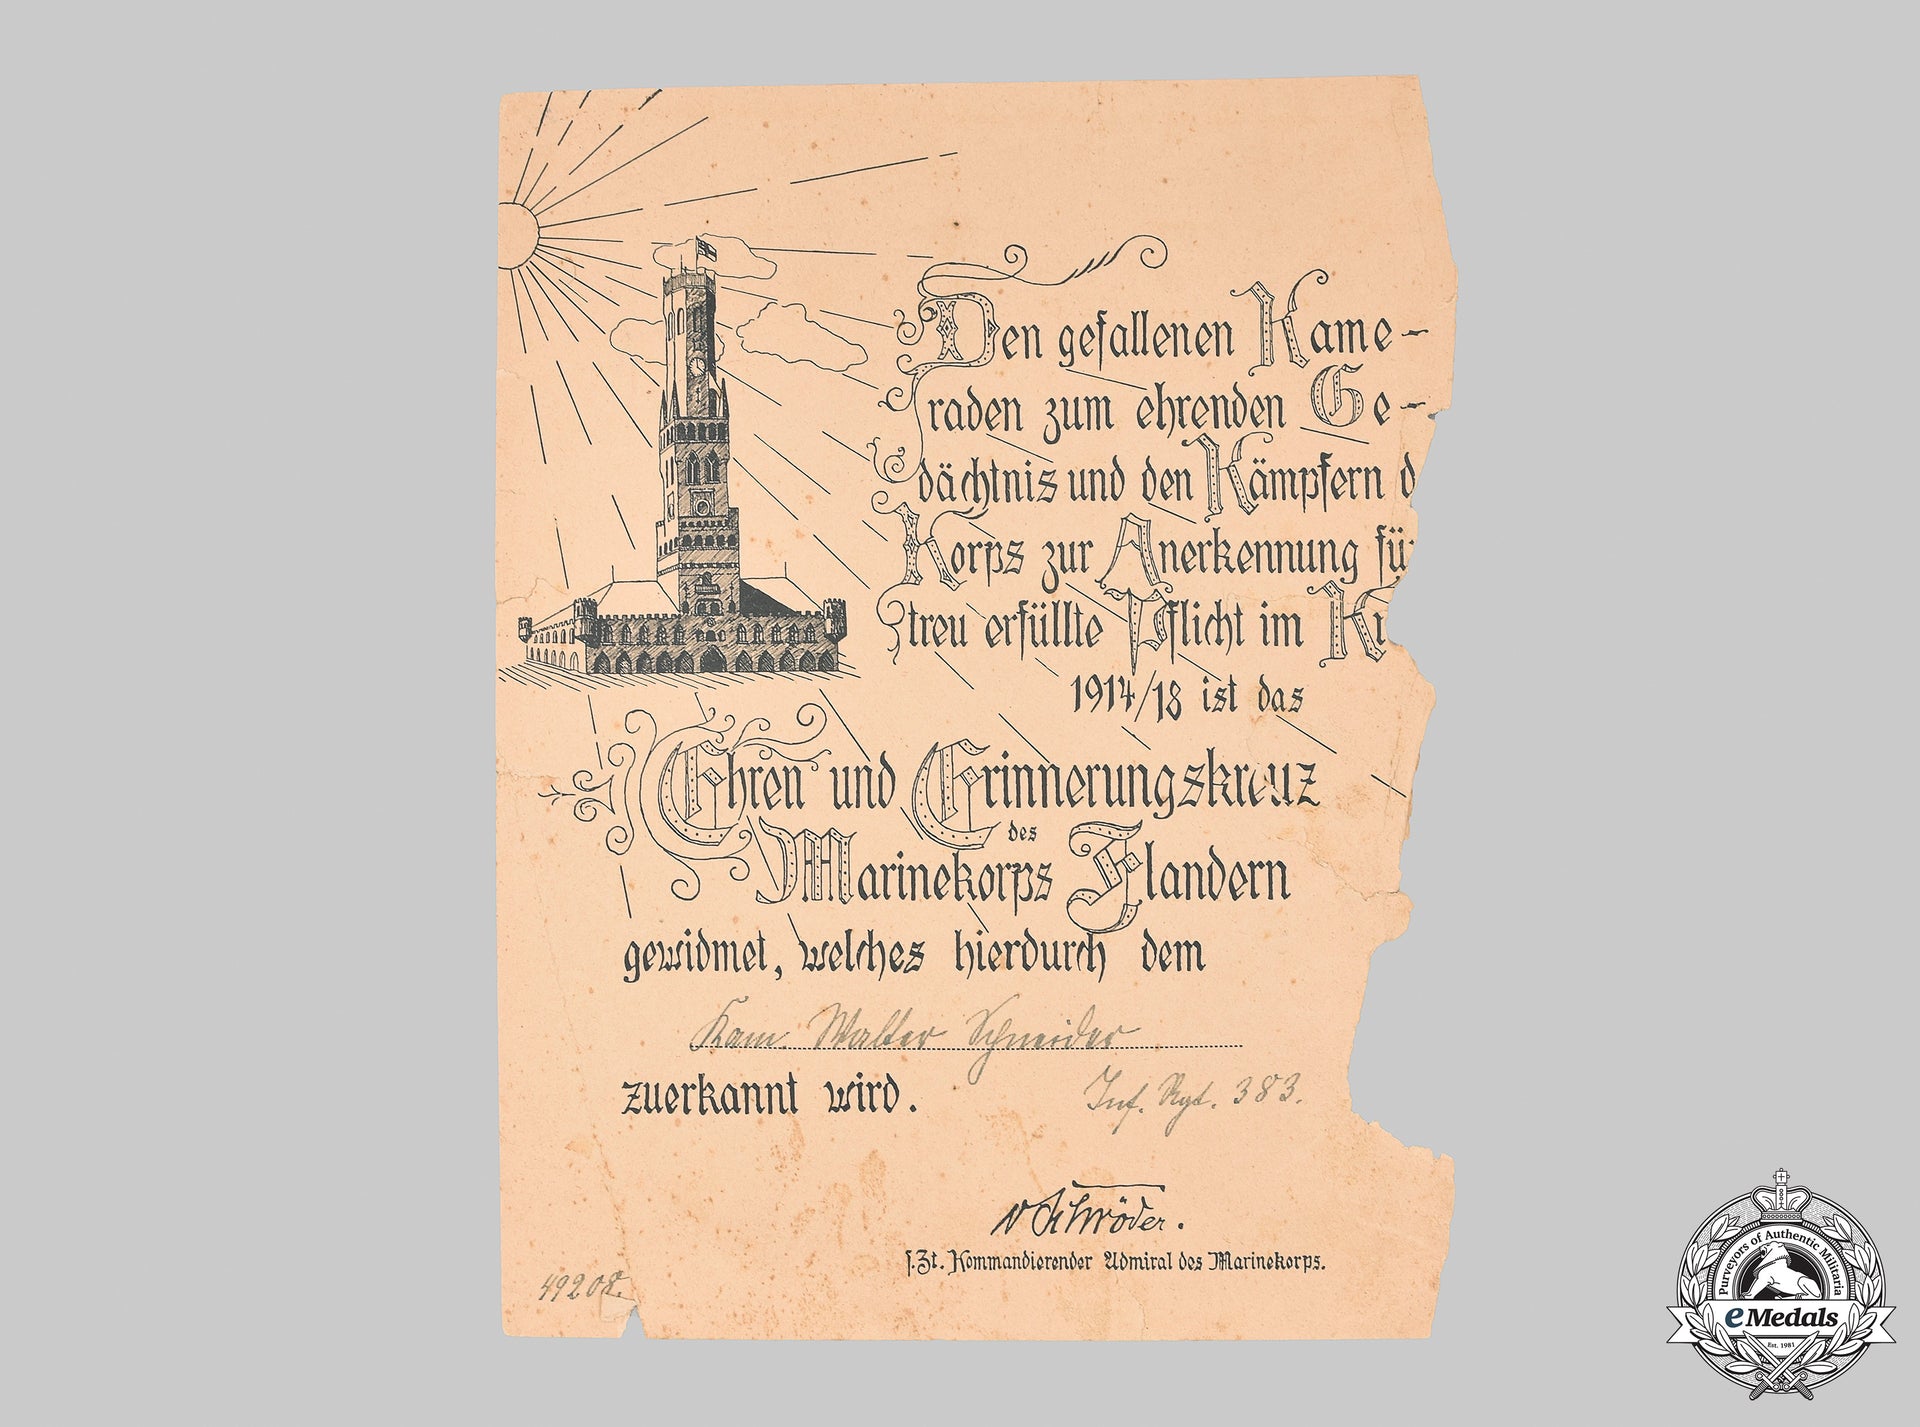 Den gefallenen Kame-
raden zum ehrenden Ge-
dächtnis und den Kämpfern d
Korps zur Anerkennung fü
treu erfüllte Pflicht im K
1914/18 ist das
Ehren und Erinnerungskreuz
des
Marinekorps Flandern
gewidmet, welches hierdurch dem
Kam. Walter Schneider
zuerkannt wird.
Inf. Rgt. 383.
v Schröder.
s.Zt. Kommandierender Admiral des Marinekorps.
49208.
Purveyors of Authentic Militaria
eMedals
Est. 1981